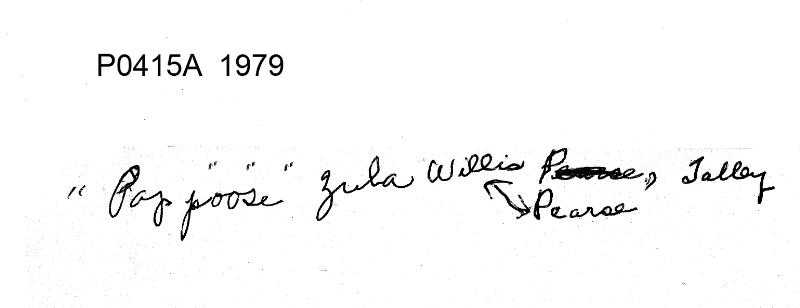 P0415A 1979
"Pappoose" Zula Willis Pearse, Talley
Pearse